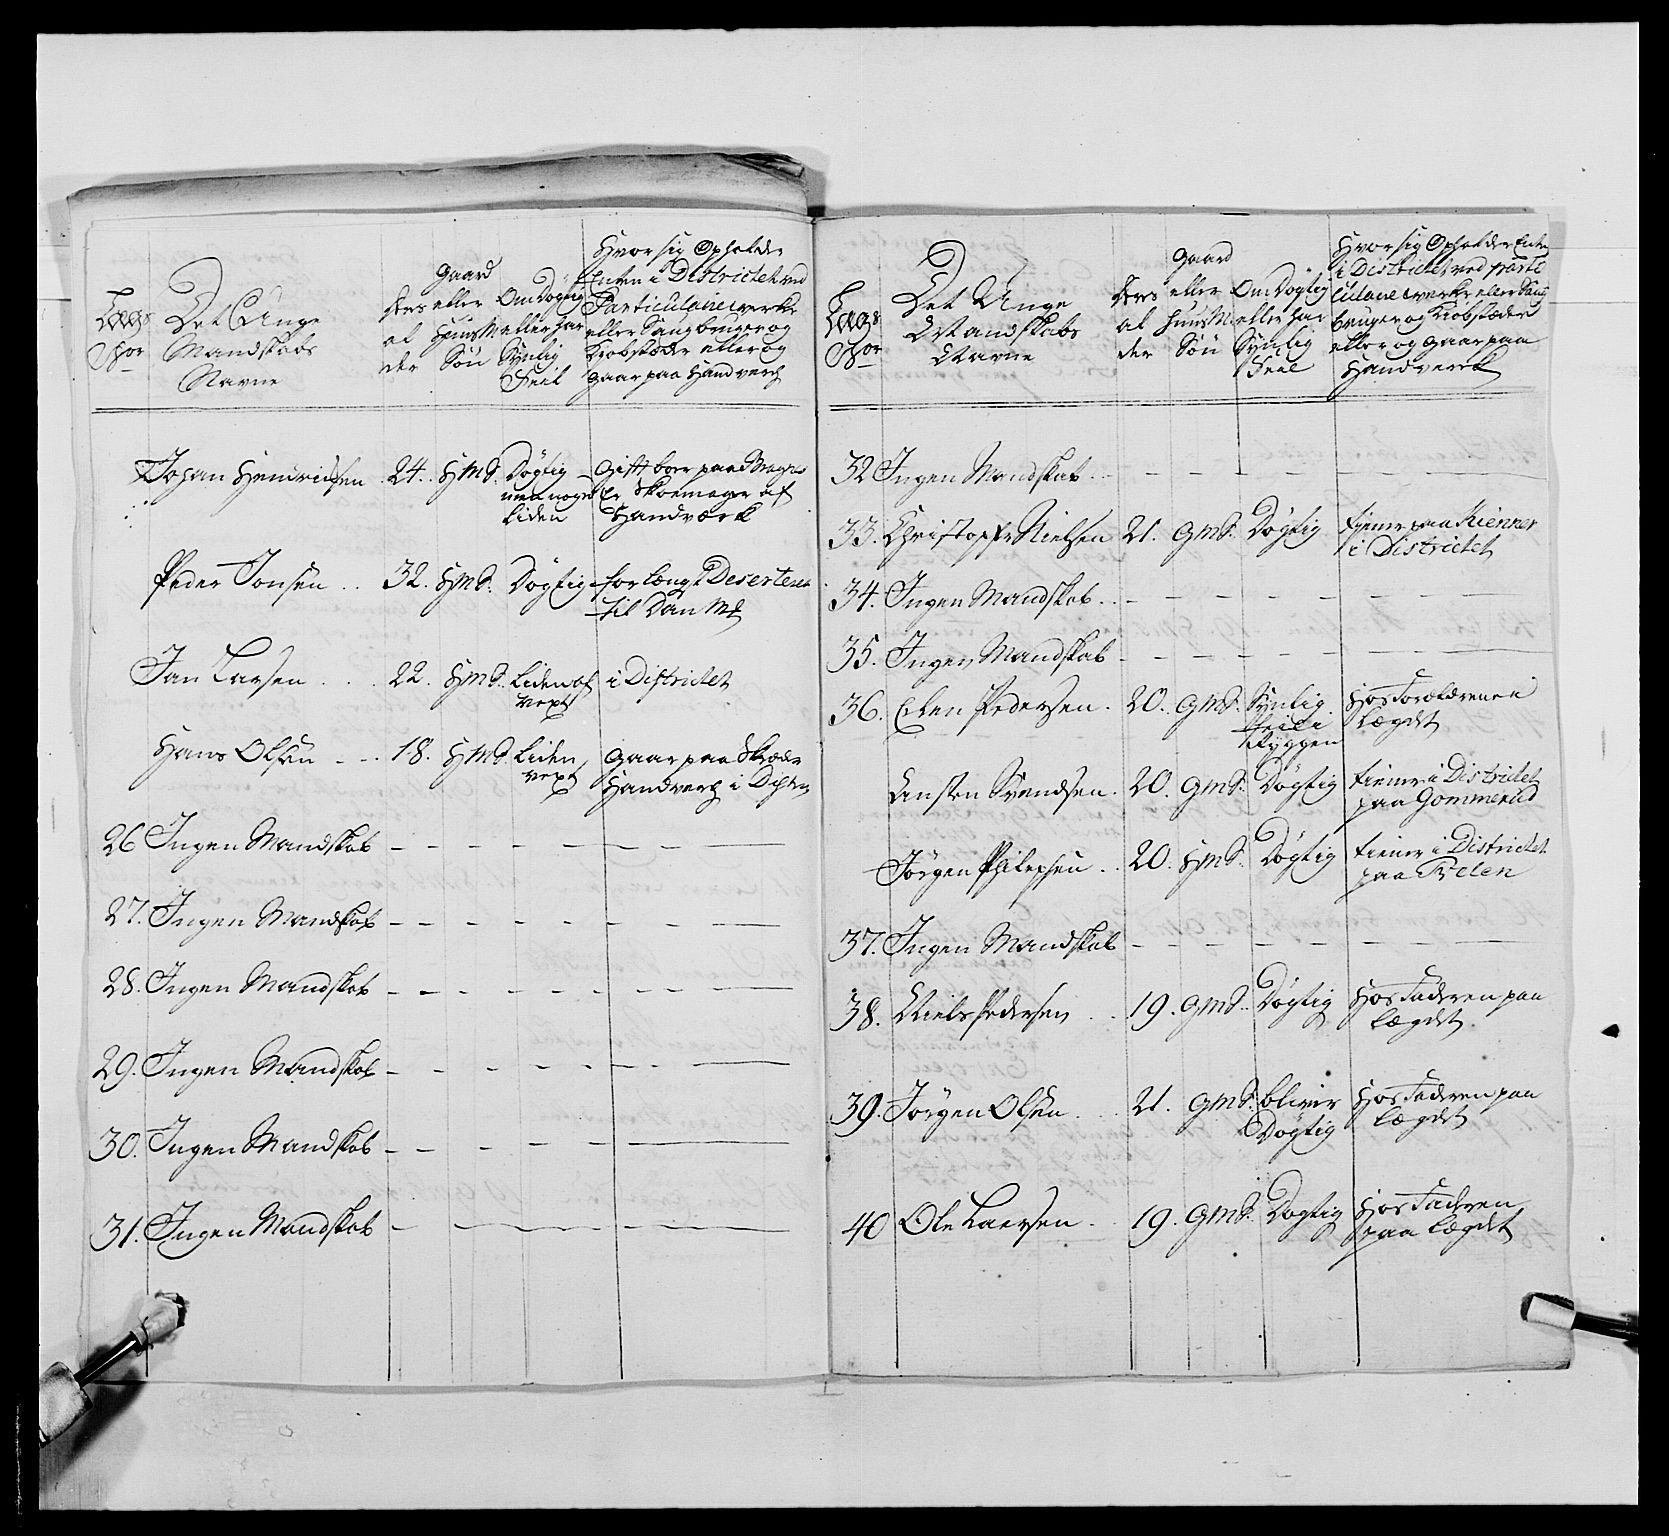 Lægs No
Det Unge Mandskabs Navne
deres alder
Gaard eller Huus M. Søn
Om Døgtig eller har Synlig Feil
Hvor sig Opholder Enten i Districtet ved Particulaire verke eller Saugbruger og Kiobstæder eller og gaar paa Handverch
Johan Hendrichsen . 24. HmS. Døgtig men noget liden Gift boer paa Bragnes Er Skoemager af Handværk
Peder Jonsen . . 32. HmS. Døgtig for længst Deserteret til Dan Mk
Jan Larsen . . . 22. HmS. Liden af vext i Districtet
Hans Olsen . . . 18. HmS. Liden vext gaar paa Skreder Handverch i Districtet
26 Ingen Mandskab — — — — — —
27. Ingen Mandskab — — — — — —
28. Ingen Mandskab — — — — — —
29. Ingen Mandskab — — — — — —
30. Ingen Mandskab — — — — —
31. Ingen Mandskab — — — — —
Lægs No
Det Unge Mandskabs Navne
deres alder
Gaard eller Huus M. Søn
Om Døgtig eller har Synlig Feil
Hvor sig Opholder Enten i Districtet ved particulaire verke eller Saugbruger og Kiobstæder eller og gaar paa Handverch
32 Ingen Mandskab . . — — — — — —
33. Christopher Nielsen 21. GmS. Døgtig tiener paa Kienner i Districtet
34. Ingen Mandskab . . — — — — — —
35. Ingen Mandskab — — — — — —
36. Elen Pedersen . 20. GmS. Synlig feil i Ryggen Hos Forældrene i Lægdet
Ansten Svendsen . 20. GmS. Døgtig tiener i Districtet paa Gommerud
Jørgen Philepsen . . 20. HmS. Døgtig tiener i Districtet paa
37. Ingen Mandskab — — — — — —
38. Niels Pedersen . . 19. GmS. Døgtig Hos Faderen paa Lægdet
39. Jørgen Olsen . . . 21. GmS. blivir Døgtig Hos Faderen paa Lægdet
40 Ole Laersen . . 19. GmS. Døgtig Hos Faderen paa Lægdet